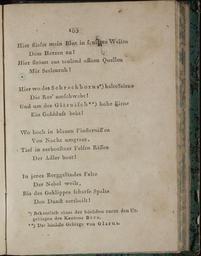 Hier fliesst mein Blut in sanften Wellen
Dem Herzen zu!
Hier strömt aus tausend offnen Quellen
Mir Seelenruh!
Hier wo des Schreckhorns*) hohe Steine
Die Ros' umschwebt!
Und um der Glärnisch**) hohe Firne
Ein Goldduft bebt!
Wo hoch in blauen Finsternissen
Von Nacht umgraut,
Tief in zerborstner Felsen Rissen
Der Adler baut!
In jenes Berggeländes Falte
Der Nebel weilt,
Bis des Geklippes scharfe Spalte
Den Dunst zertheilt!
*) Bekanntlich eines der höchsten unter den Un-
gebürgen des Kantons Bern.
**) Die höchste Gebirge von Glarus.